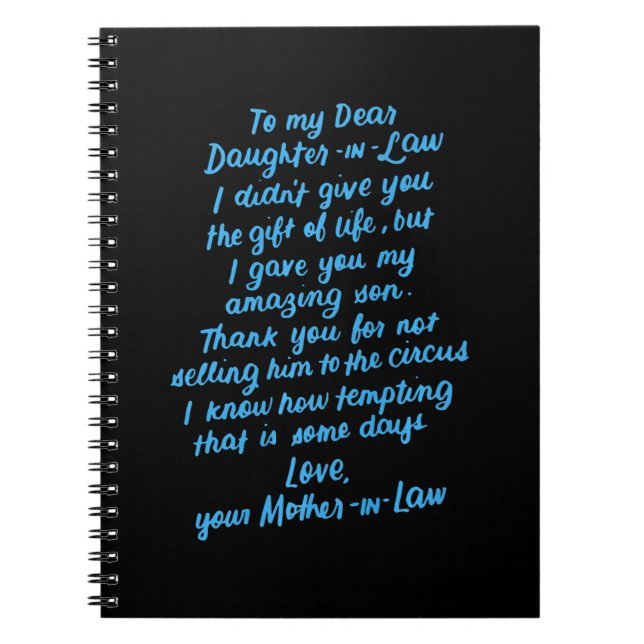 To my Dear
Daughter-in-Law
I didn't give you
the gift of life, but
I gave you my
amazing son.
Thank you for not
selling him to the circus
I know how tempting
that is some days
Love,
your Mother-in-Law